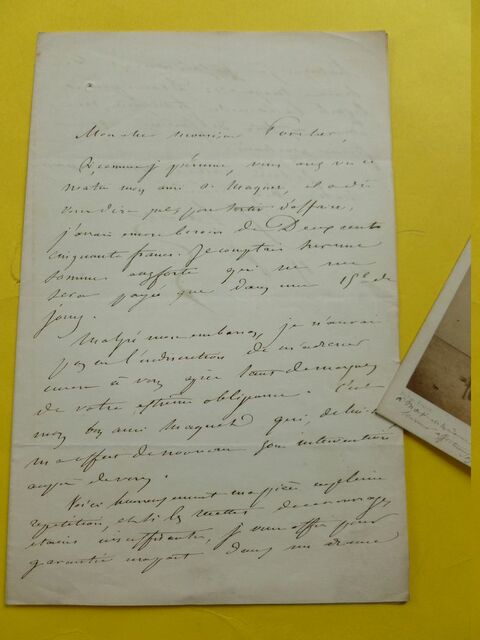 Mon cher monsieur Porcher
Si, comme je pense, vous avez vu ce
matin mon ami A. Maquet, il a dû
vous dire que pour sortir d'affaire,
j'aurais encore besoin de Deux cents
cinquante francs. Je comptais sur une
somme assez forte qui ne me
sera payée que dans une 15e de
jours.
Malgré mon embarras, je n'aurais
pas eu l'indiscrétion de m'adresser
encore à vous après tant de marques
de votre extrême obligeance. C'est
mon bon ami Maquet qui, de lui-
m'a offert de nouveau son intervention
auprès de vous.
Voici heureusement ma pièce en pleine
répétition, et si les recettes
étaient insuffisantes, je vous offre pour
garantie dans un drame